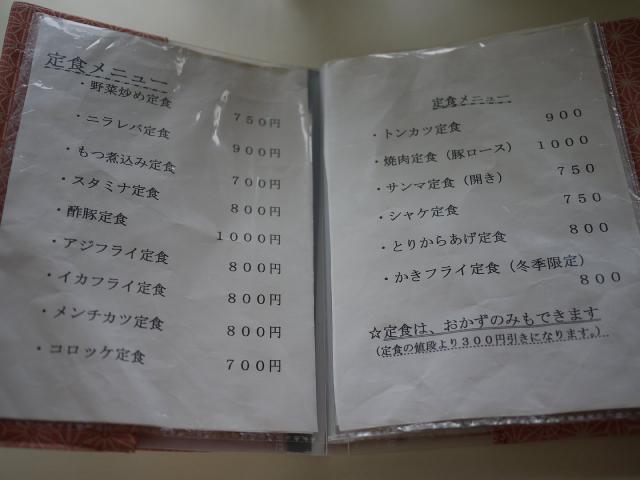 定食メニュー
・野菜炒め定食 750円
・ニラレバ定食 900円
・もつ煮込み定食 700円
・スタミナ定食 800円
・酢豚定食 1000円
・アジフライ定食 800円
・イカフライ定食 800円
・メンチカツ定食 800円
・コロッケ定食 700円
定食メニュー
・トンカツ定食 900
・焼肉定食（豚ロース） 1000
・サンマ定食（開き） 750
・シャケ定食 750
・とりからあげ定食 800
・かきフライ定食（冬季限定） 800
☆定食は、おかずのみもできます
（定食の値段より300円引きになります。）